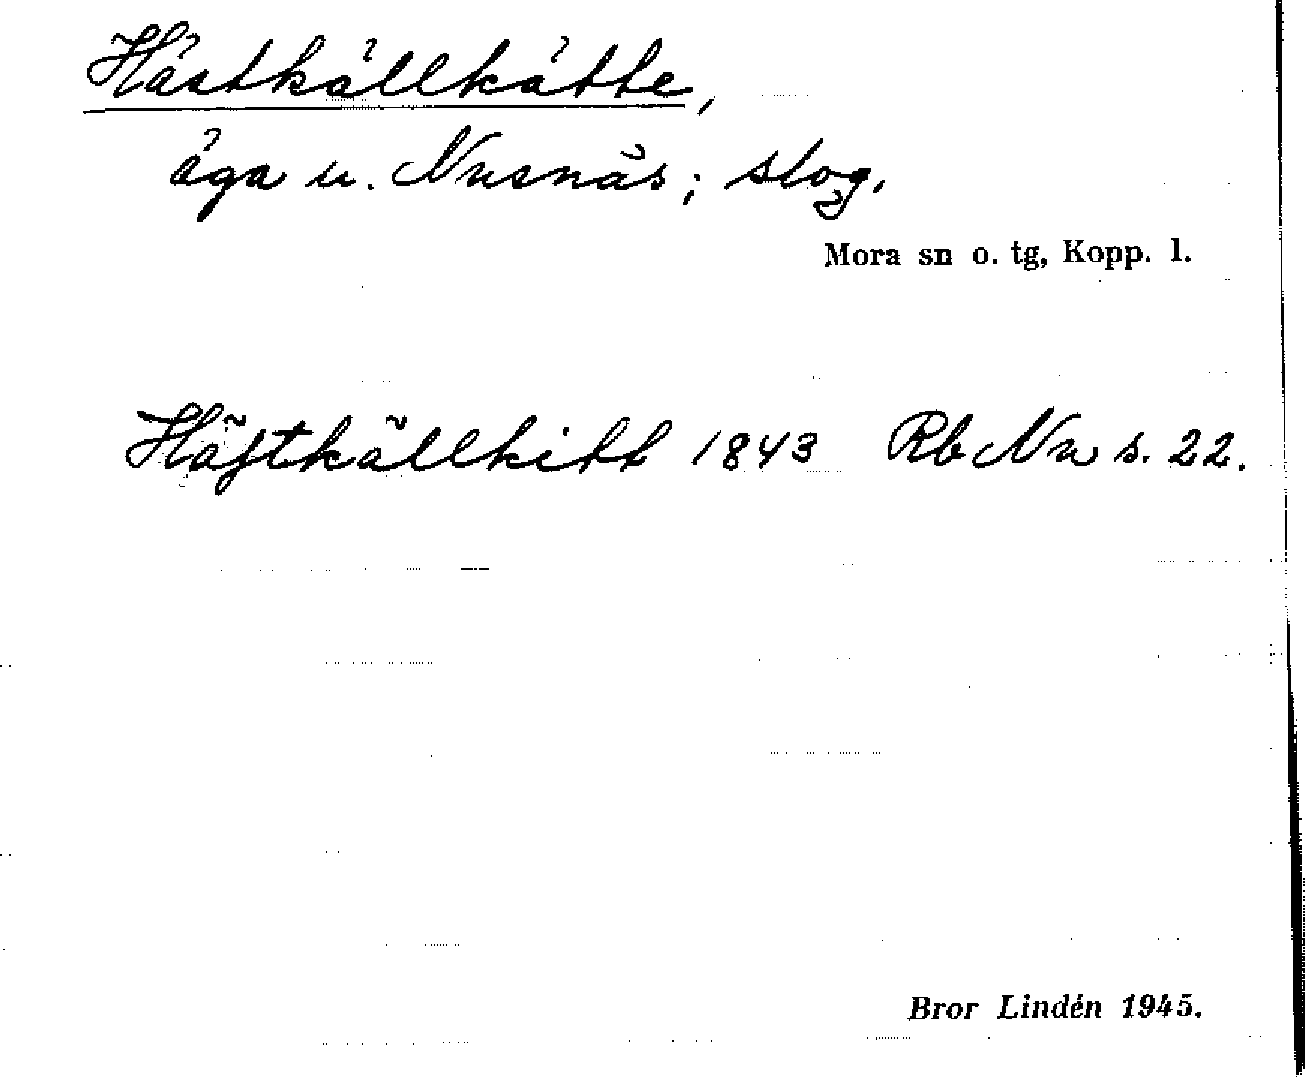 Hästkällkätte,
äga u. Nusnäs; slog.
Mora sn o. tg, Kopp. l.
Hästkällkitt 1843 Rb Nu s. 22.
Bror Lindén 1945.